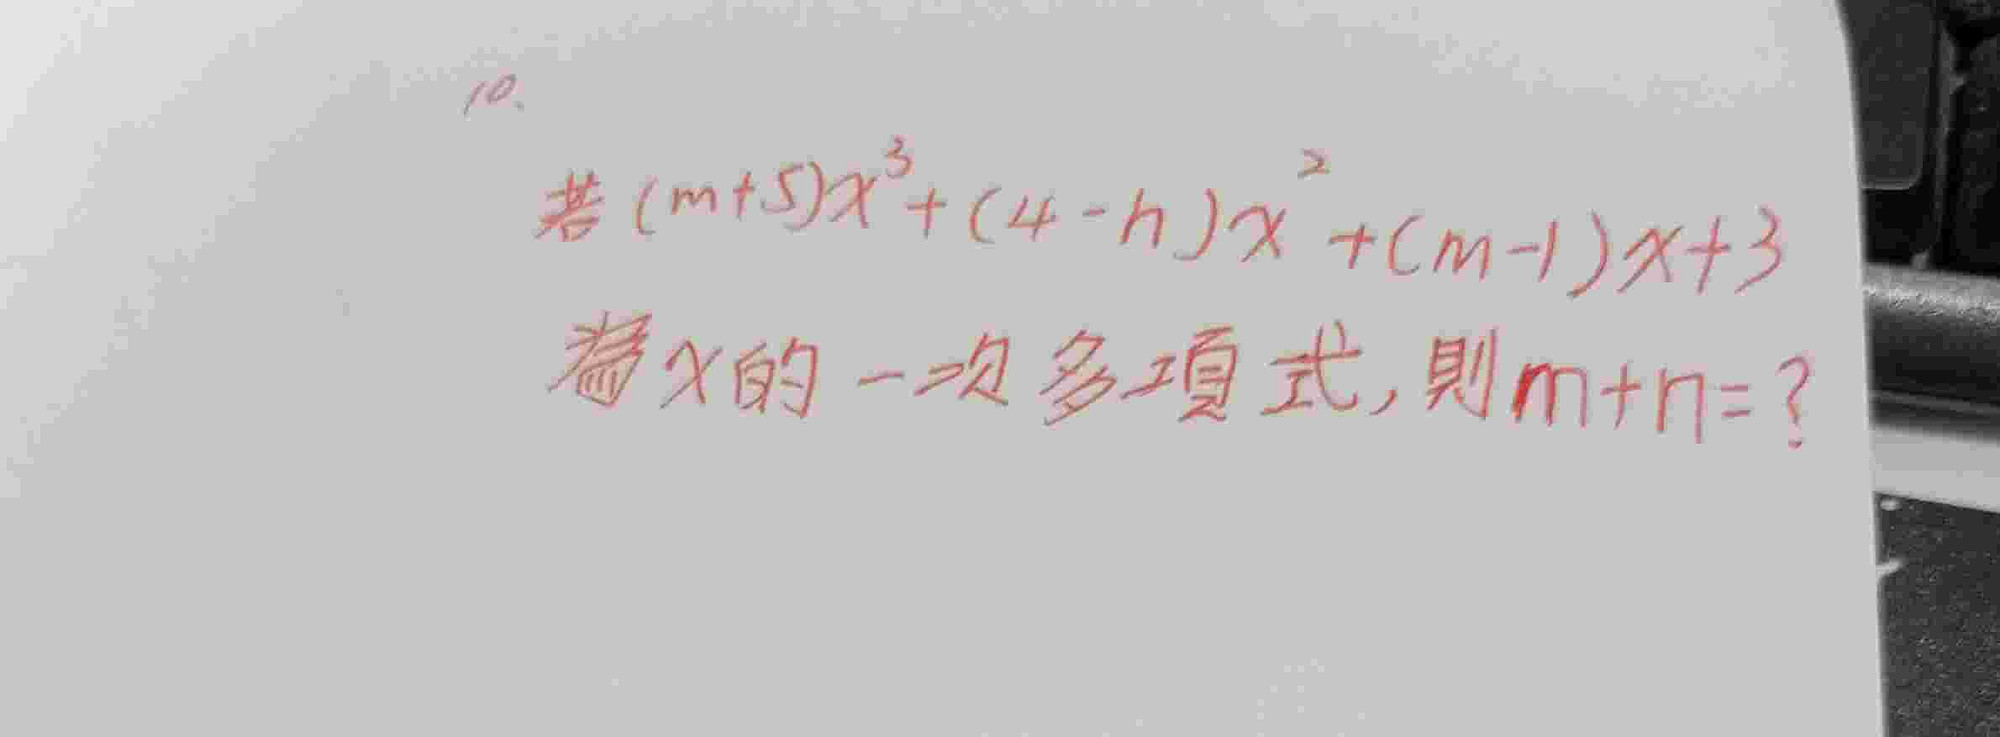 10.
若(m+5)x³+(4-n)x²+(m-1)x+3
為x的一次多項式,則m+n=?